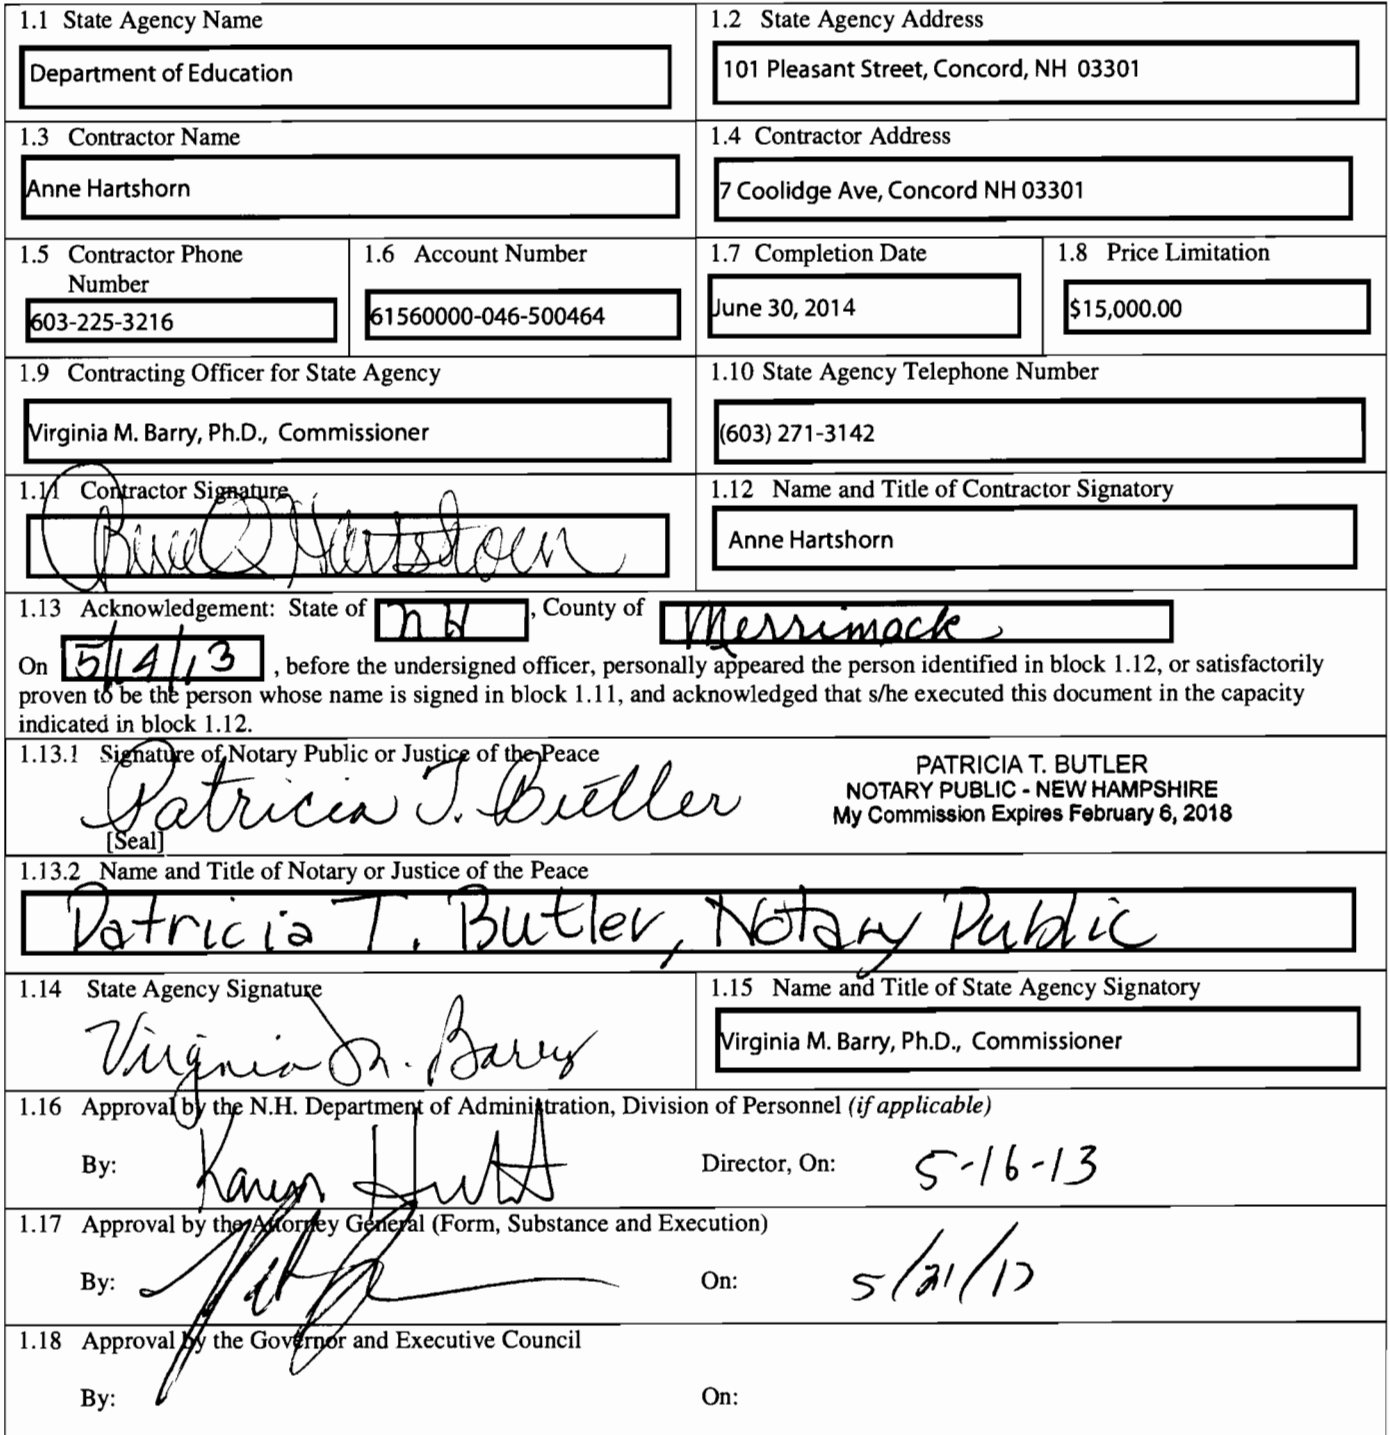 1.1 State Agency Name
Department of Education
1.2 State Agency Address
101 Pleasant Street, Concord, NH 03301
1.3 Contractor Name
Anne Hartshorn
1.4 Contractor Address
7 Coolidge Ave, Concord NH 03301
1.5 Contractor Phone
Number
603-225-3216
1.6 Account Number
61560000-046-500464
1.7 Completion Date
June 30, 2014
1.8 Price Limitation
$15,000.00
1.9 Contracting Officer for State Agency
Virginia M. Barry, Ph.D., Commissioner
1.10 State Agency Telephone Number
(603) 271-3142
1.11 Contractor Signature
Hartshorn
1.12 Name and Title of Contractor Signatory
Anne Hartshorn
1.13 Acknowledgement: State of NH, County of Merrimack
On 5/14/13, before the undersigned officer, personally appeared the person identified in block 1.12, or satisfactorily
proven to be the person whose name is signed in block 1.11, and acknowledged that s/he executed this document in the capacity
indicated in block 1.12.
1.13.1 Signature of Notary Public or Justice of the Peace
Patricia T. Butler
[Seal]
PATRICIA T. BUTLER
NOTARY PUBLIC - NEW HAMPSHIRE
My Commission Expires February 6, 2018
1.13.2 Name and Title of Notary or Justice of the Peace
Patricia T. Butler, Notary Public
1.14 State Agency Signature
Virginia M. Barry
1.15 Name and Title of State Agency Signatory
Virginia M. Barry, Ph.D., Commissioner
1.16 Approval by the N.H. Department of Administration, Division of Personnel (if applicable)
By: Karen
Director, On: 5-16-13
1.17 Approval by the Attorney General (Form, Substance and Execution)
By:
On: 5/21/13
1.18 Approval by the Governor and Executive Council
By:
On: